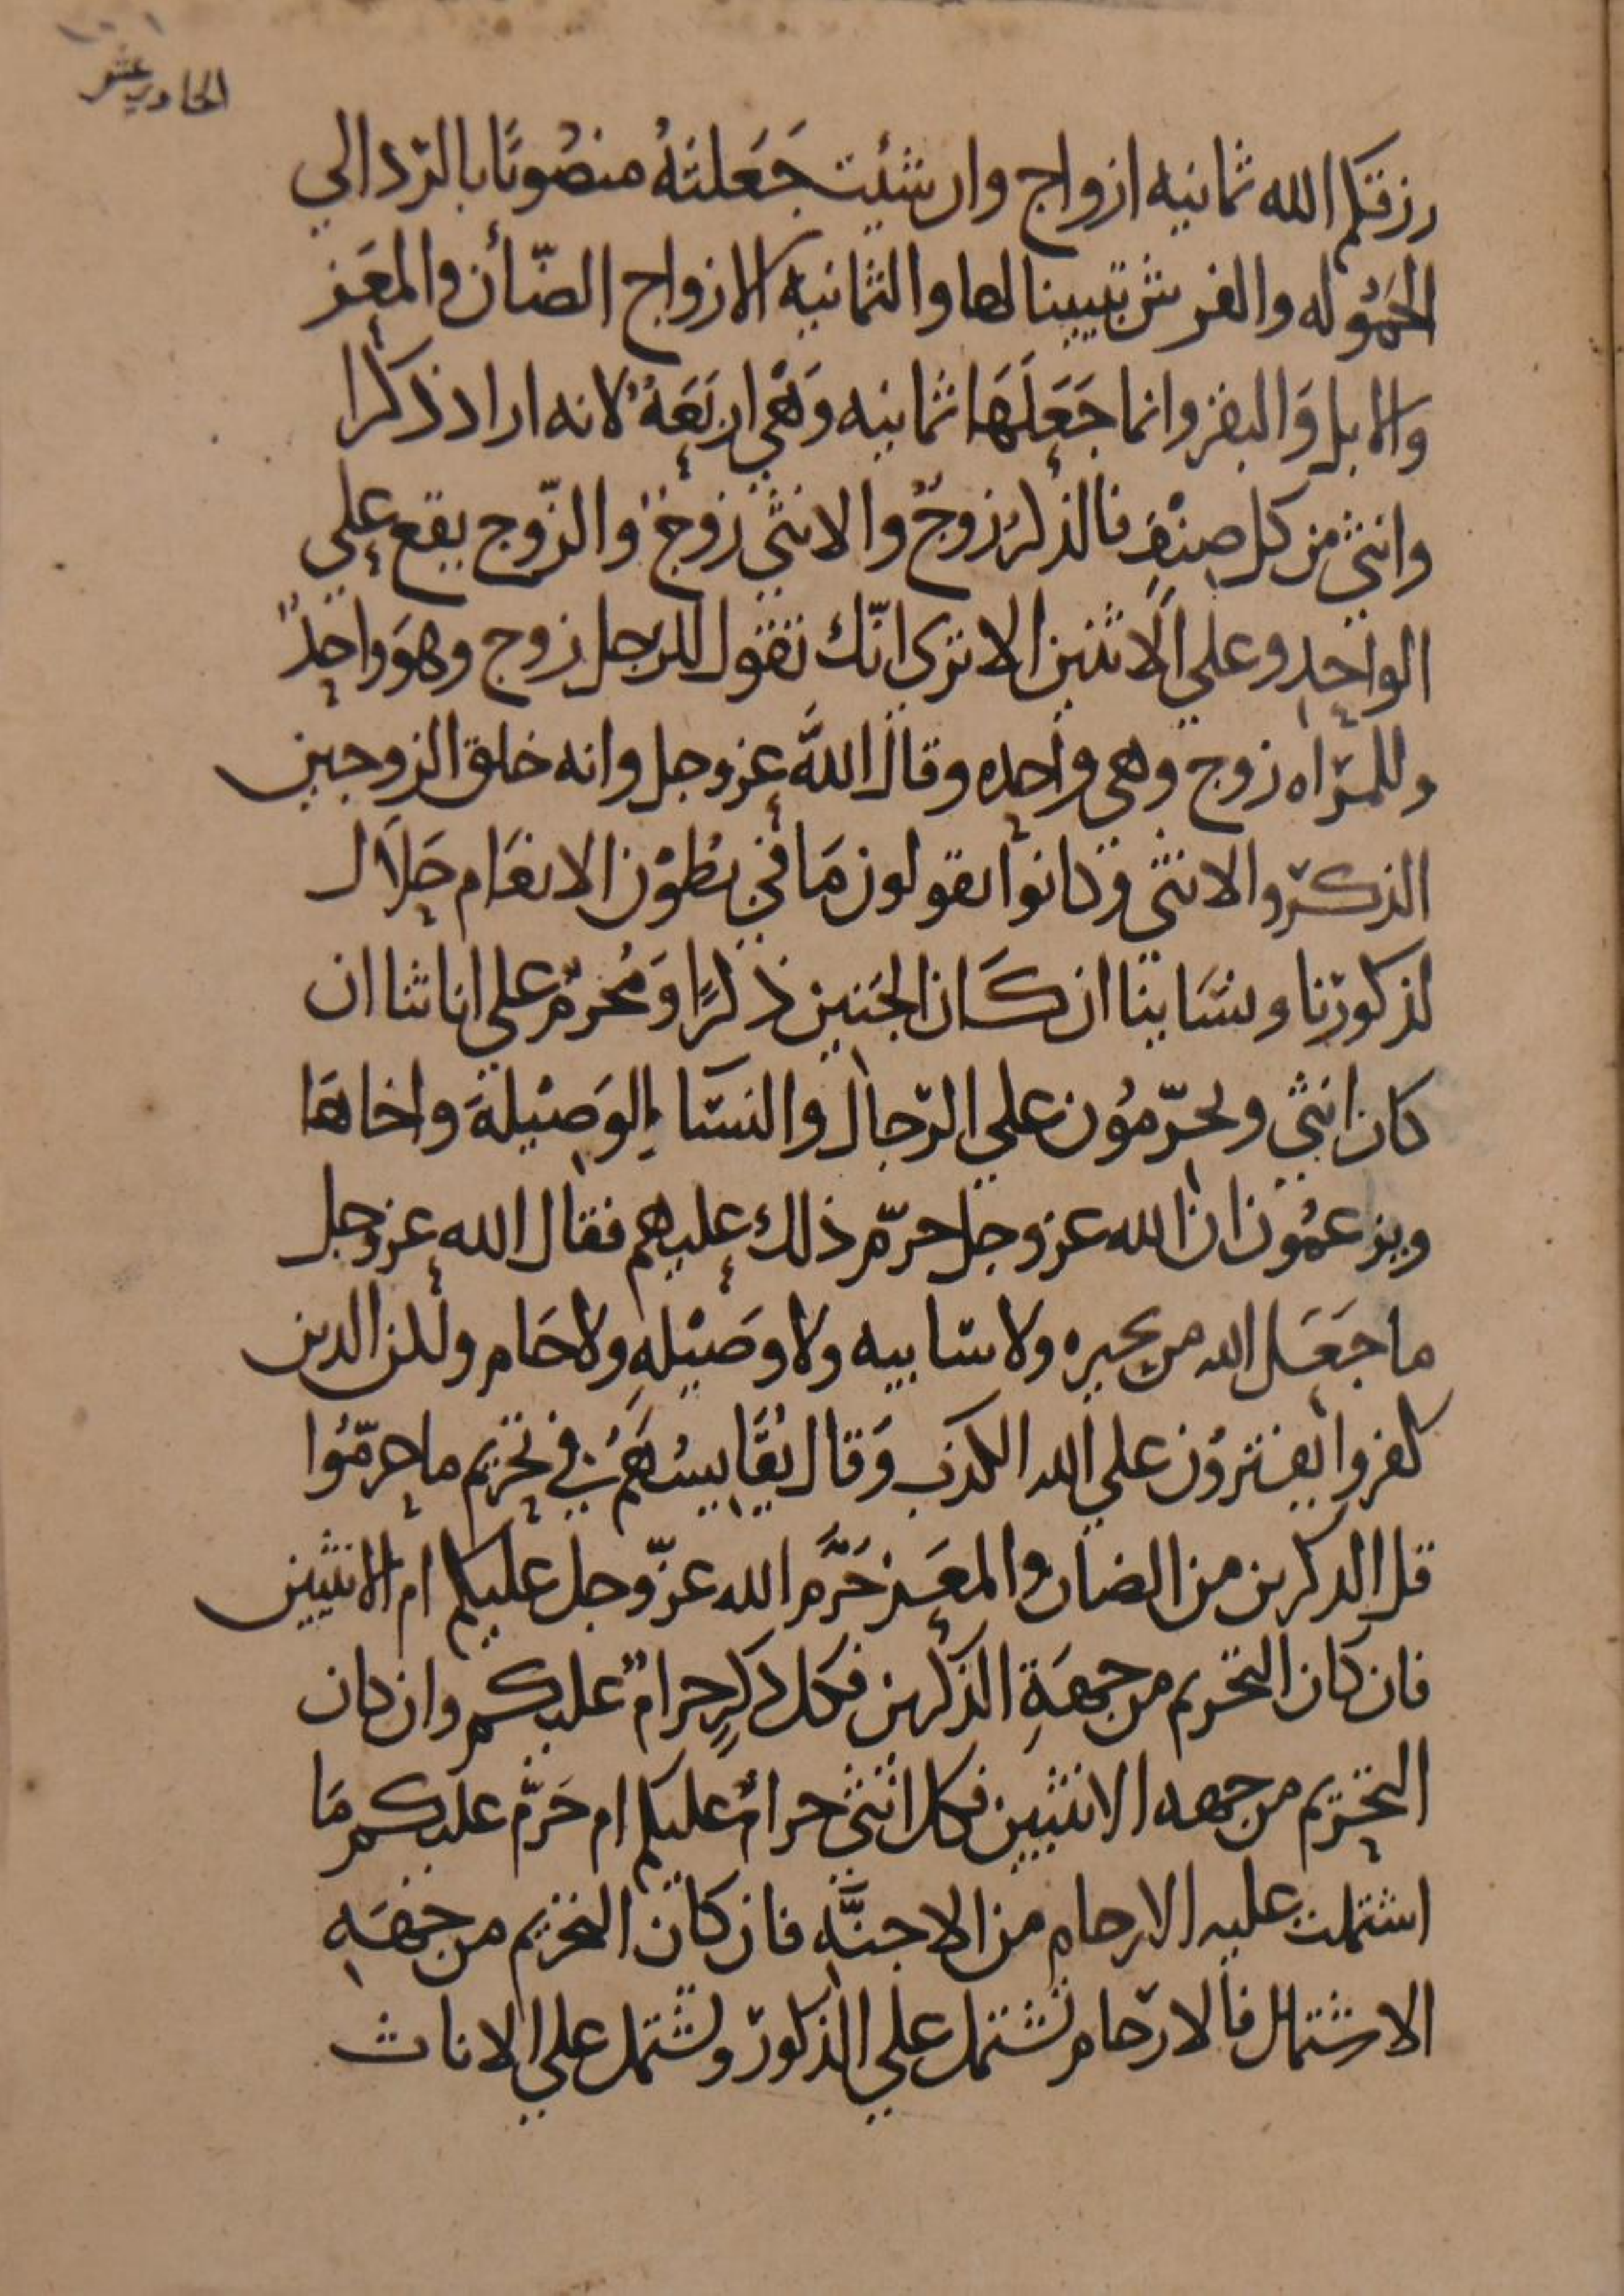 الحادي عشر
رزقكم الله ثمانيه ازواج وان شئيت جَعَلتهُ منصُوبًا بالرّد الي
الحَمُوله والفرش تبيينا لها والثمانيه الازواج الضّأن والمعَز
والابل وَالبقر وانما جَعَلَهَا ثمانيه وَهْي اربَعَةٌ لانه اراد ذكرا
وانثي من كل صِنْفٍ فالذكرُ زوجٌ والانثي زوجٌ والزّوج يقع علي
الواحد وعلي الاثنين الا تري انّك تقول للرجل زوج وهوَ واحدٌ
وللمرّاه زوج وهي واحده وقال اللهُ عز وجل وانه خلق الزوجين
الذكرّ والانثي وكانوا يقولون مَا في بطوْن الانعَام حَلَال
لذكورنا ونسَاينا ان كَان الجَنين ذكرًا وَمُحرمٌ علي اناثنا ان
كان انثي ويحرّمُون علي الرّجال والنسَّا الوَصْيلةَ واخاهَا
ويزعمُون ان الله عز وجل حرّم ذلك عليهم فقال الله عز وجل
ما جَعَل الله من بحيره ولا سّاييه ولا وصَيْلهٍ ولا حَام ولكن الذين
كفروا يفترُون علي الله الكذبَ وَقال يُقَاييسُهَمُ في تحريم ما حرمّوا
قل الذكرين من الضان والمعَز حَرَّم الله عزّ وجل عليكم ام الانثيين
فان كان التحريم من جهَةِ الذكرين فكل ذكرٍ حرامٌ عليكم وان كان
التحرّيم من جهه الانثيين فكل انثي حرامٌ عليكم ام حَرّم عليكم مَا
اشتملت عليه الارحام من الاجنَّهِ فان كان التحريم من جهَهِ
الاشتمال فالارّحام تشتمل علي الذكورّ وتشتمل علي الاناث